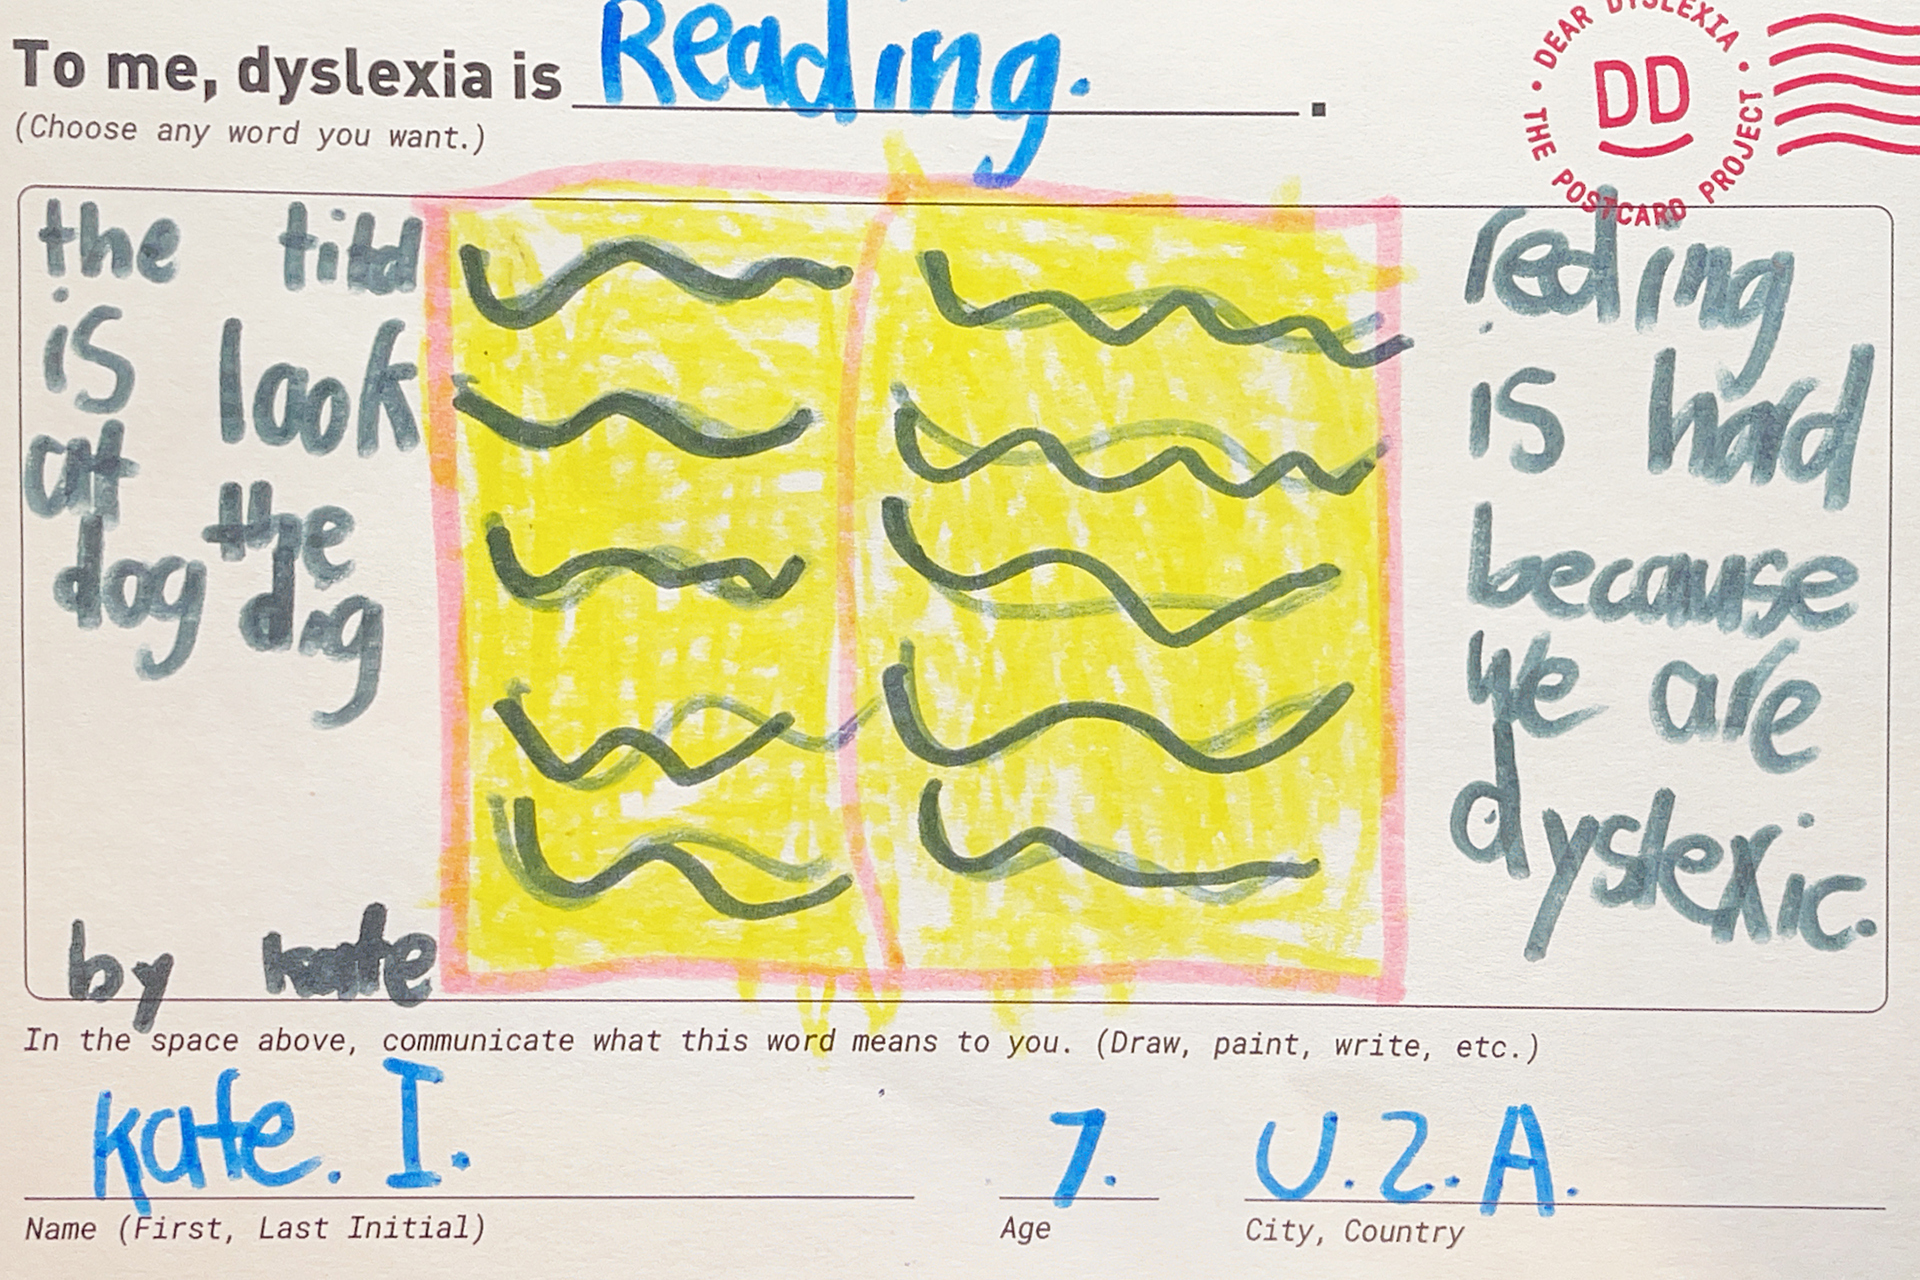 To me, dyslexia is Reading. .
(Choose any word you want.)
DEAR DYSLEXIA • THE POSTCARD PROJECT •
DD
the titd
is look
at the
dog dng
by kate
reding
is hard
because
We are
dyslexic.
In the space above, communicate what this word means to you. (Draw, paint, write, etc.)
Kate. I. 7. U.S.A.
Name (First, Last Initial) Age City, Country